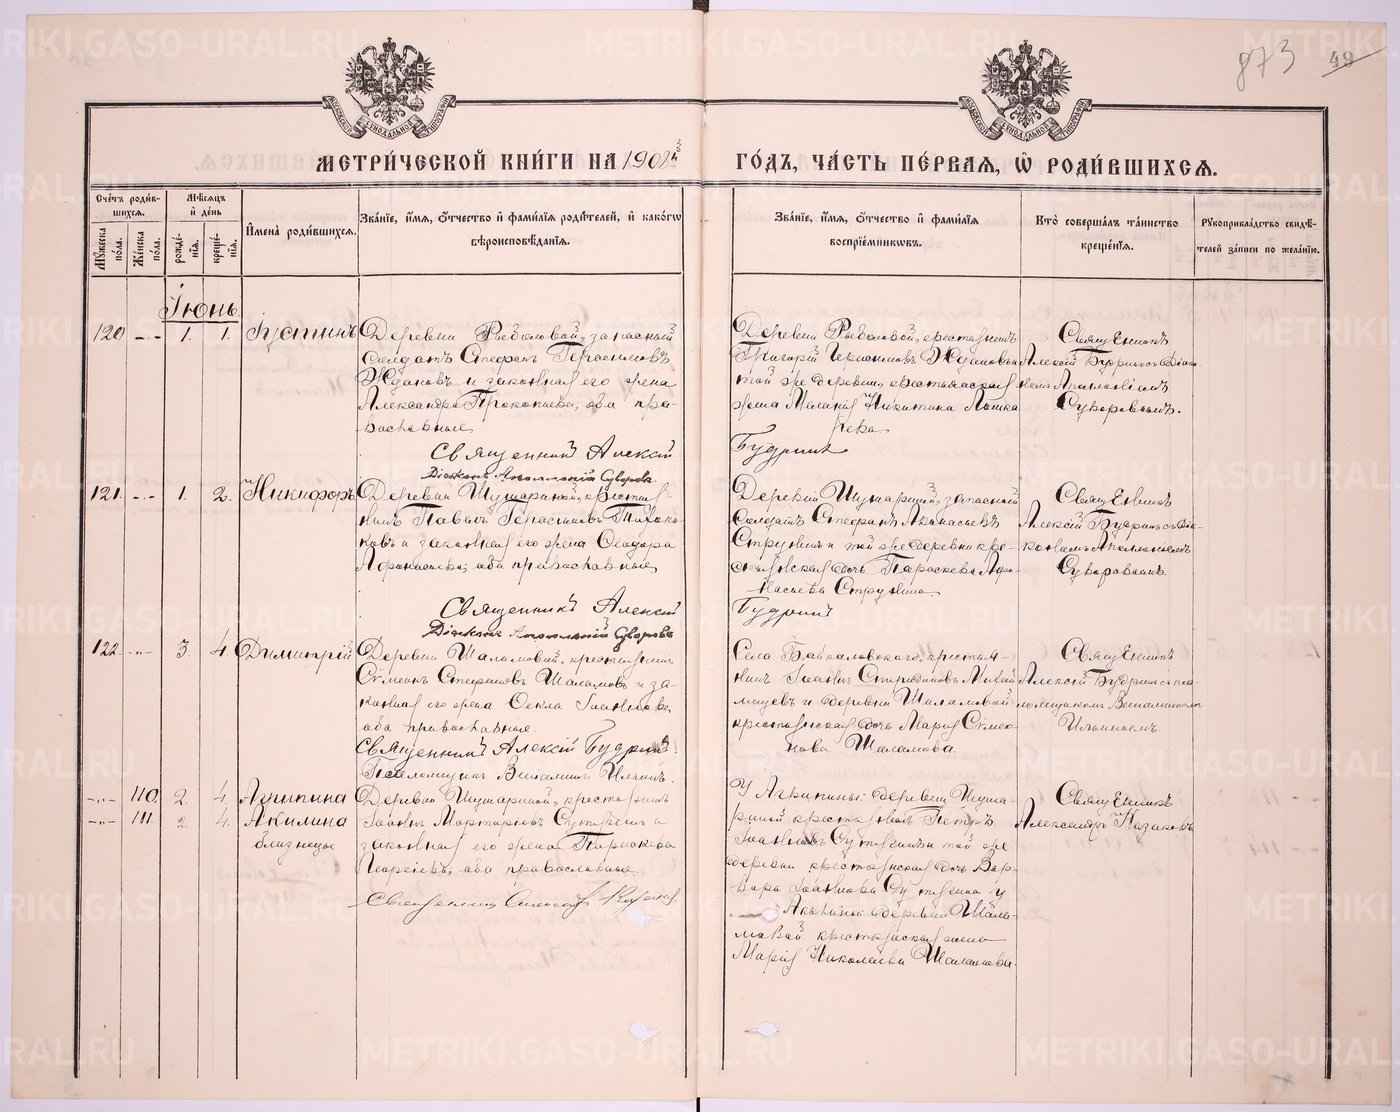 873 49
МОСКОВСКОЙ СѴНОДАЛЬНОЙ ТИПОГРАФІИ
МОСКОВСКОЙ СѴНОДАЛЬНОЙ ТИПОГРАФІИ
МЕТРИЧЕСКОЙ КНИГИ НА 1908 ГОДЪ, ЧАСТЬ ПЕРВАЯ, Ѿ РОДИВШИХСЯ.
Счетъ родив-
шихся.
Мужеска пола.
Женска пола.
Мѣсяцъ
и день
рожде-
нія.
креще-
нія.
Имена родившихся.
Званіе, имя, отчество и фамилія родителей, и какогѡ
вѣроисповѣданія.
Званіе, имя, отчество и фамилія
воспріемниковъ.
Кто совершалъ таинство
крещенія.
Рукоприкладство свидѣ-
телей записи по желанію.
Іюнь.
120 -„- 1. 1. Іустинъ
Деревни Рыболовой, запасный
солдатъ Стефанъ Герасимовъ
Ждановъ и законная его жена
Александра Прокопьева; оба пра-
вославные
Священникъ Алексій
Діаконъ Аполлоній Суворовъ
Деревни Рыболовой, крестьянинъ
Григорій Герасимовъ Ждановъ и
той же деревни, крестьянская
жена Меланія Никитина
Будринъ
Священникъ
Алексій Будринъ съ Діако-
номъ Аполлоніемъ
Суворовымъ.
121. -„- 1. 2. Никифоръ
Деревни Шушариной, крестья-
нинъ Павелъ Герасимовъ Тихоно-
ковъ и законная его жена Ѳеодора
Афанасьева; оба православные
Священникъ Алексій
Діаконъ Аполлоній Суворовъ
Деревни Шушариной, запасный
солдатъ Стефанъ Аѳанасьевъ
Струнинъ и той же деревни кре-
стьянская дочь Параскева Аѳа-
насьева Струнина
Будринъ
Священникъ
Алексій Будринъ съ Діа-
кономъ Аполлоніемъ
Суворовымъ.
122 -„- 3. 4. Димитрій
Деревни Шаламовой, крестьянинъ
Сѵмеонъ Стефановъ Шаламовъ и за-
конная его жена Ѳекла Іоаннова,
оба православные.
Священникъ Алексій Будринъ.
Псаломщикъ Веніаминъ Ильинъ.
Села Байкаловскаго, крестья-
нинъ Іоаннъ Спиридоновъ
и деревни Шаламовой
крестьянская дочь Марія Сѵмео-
нова Шаламова.
Священникъ
Алексій Будринъ съ пса-
ломщикомъ Веніаминомъ
Ильинымъ.
-„- 110. 2. 4. Агрипина
-„- 111 2. 4. Акилина
близнецы
Деревни Шушариной, крестьянинъ
Іоаннъ Мартиріевъ Сутягинъ и
законная его жена Параскева
Георгіева, оба православные.
Священникъ Александръ Казаковъ.
У Агрипины: деревни Шуша-
риной крестьянинъ Петръ
Іоанновъ Сутягинъ и той же
деревни крестьянская дочь Вар-
вара Іоаннова Сутягина у
Акилины: деревни Шала-
мовой крестьянская жена
Марія Николаева Шаламова.
Священникъ
Александръ Казаковъ
METRIKI.GASO-URAL.RU